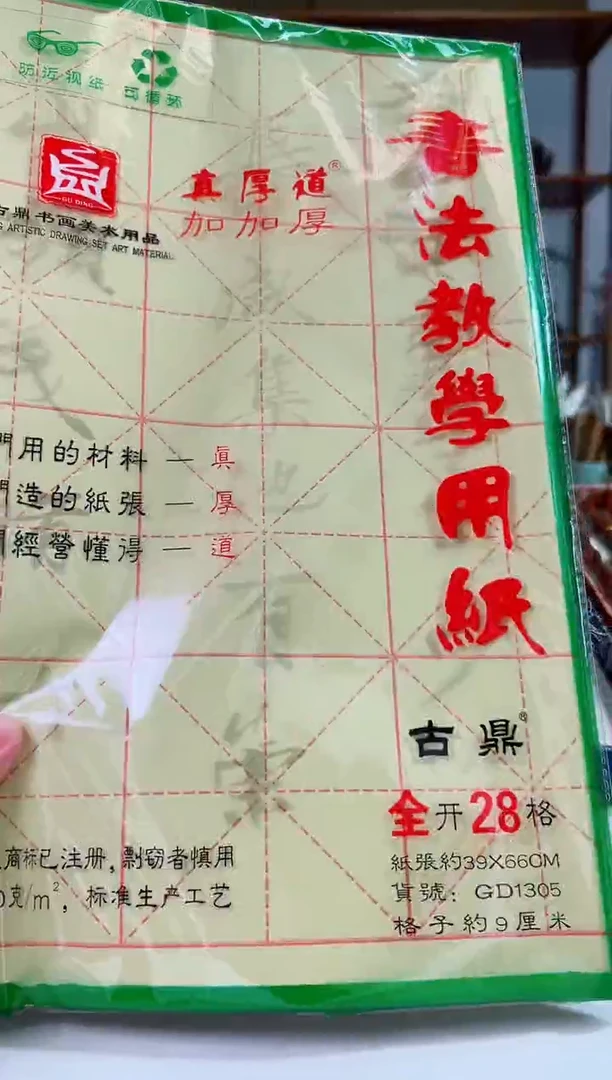 防近视纸
可循环
GU DING
古鼎书画美术用品
ARTISTIC DRAWING SET ART MATERIAL
真厚道®
加加厚
書法教學用紙
門用的材料 — 真
門造的紙張 — 厚
經營懂得 — 道
古鼎®
全开28格
紙張約39X66CM
貨號：GD1305
格子約9厘米
商标已注册，剽窃者慎用
0克/m²，标准生产工艺